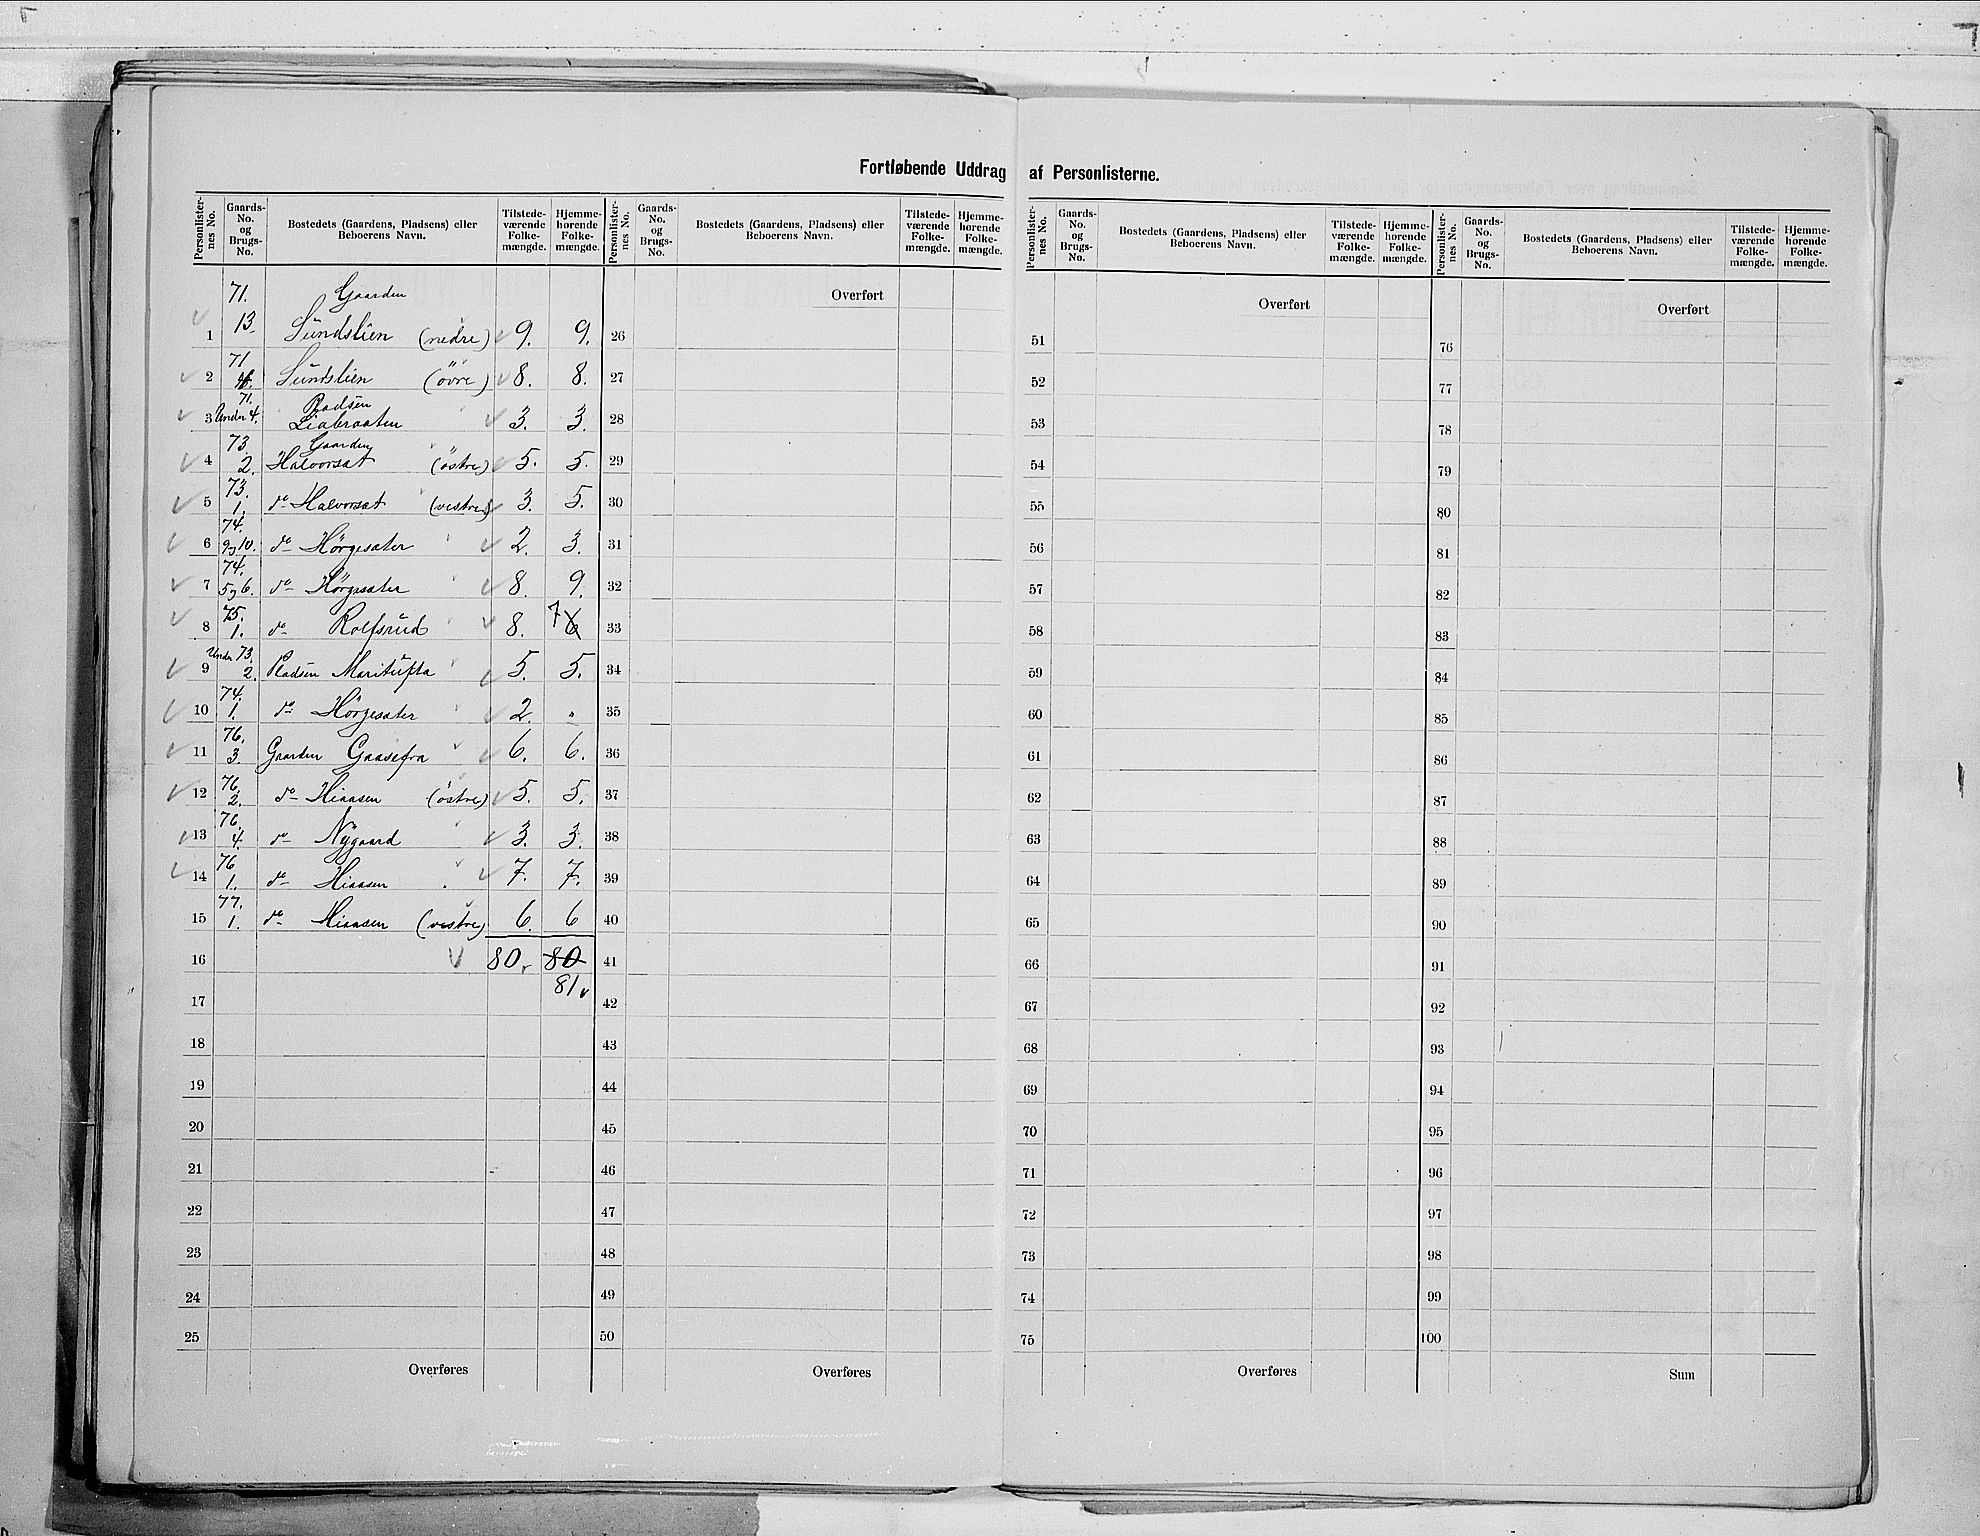 Fortløbende Uddrag af Personlisterne.
Personlister-nes No. | Gaards-No. og Brugs-No. | Bostedets (Gaardens, Pladsens) eller Beboerens Navn. | Tilstede-værende Folke-mængde. | Hjemme-hørende Folke-mængde.
71. Gaarden
1 13. Sündslien (nedre) 9. 9.
71.
2 4. Sündslien (övre) 8. 8.
71. Pladsen
3 Under 4. Liabraaten 3. 3.
73. Gaarden
4 2. Halvorsat (östre) 5. 5.
73.
5 1. do Halvorsat (vestre) 3. 5.
74.
6 9 og 10. do Hörgesater 2. 3.
74.
7 5 og 6. do Hörgesater 8. 9.
75.
8 1. do Rolfsrüd 8. 7 6
Under 73.
9 2. Pladsen Maritüfta 5. 5.
74.
10 1. do Hörgesater 2. "
76.
11 3. Gaarden Gaasefra 6. 6.
76.
12 2. do Hiaasen (östre) 5. 5.
76.
13 4. do Nÿgaard 3. 3.
76
14 1. do Hiaasen 7. 7.
77.
15 1. do Hiaasen (vestre) 6. 6
16 80. 80
81
17
18
19
20
21
22
23
24
25
Overføres
Personlister-nes No. | Gaards-No. og Brugs-No. | Bostedets (Gaardens, Pladsens) eller Beboerens Navn. | Tilstede-værende Folke-mængde. | Hjemme-hørende Folke-mængde.
Overført
26
27
28
29
30
31
32
33
34
35
36
37
38
39
40
41
42
43
44
45
46
47
48
49
50
Overføres
Personlister-nes No. | Gaards-No. og Brugs-No. | Bostedets (Gaardens, Pladsens) eller Beboerens Navn. | Tilstede-værende Folke-mængde. | Hjemme-hørende Folke-mængde.
Overført
51
52
53
54
55
56
57
58
59
60
61
62
63
64
65
66
67
68
69
70
71
72
73
74
75
Overføres
Personlister-nes No. | Gaards-No. og Brugs-No. | Bostedets (Gaardens, Pladsens) eller Beboerens Navn. | Tilstede-værende Folke-mængde. | Hjemme-hørende Folke-mængde.
Overført
76
77
78
79
80
81
82
83
84
85
86
87
88
89
90
91
92
93
94
95
96
97
98
99
100
Sum